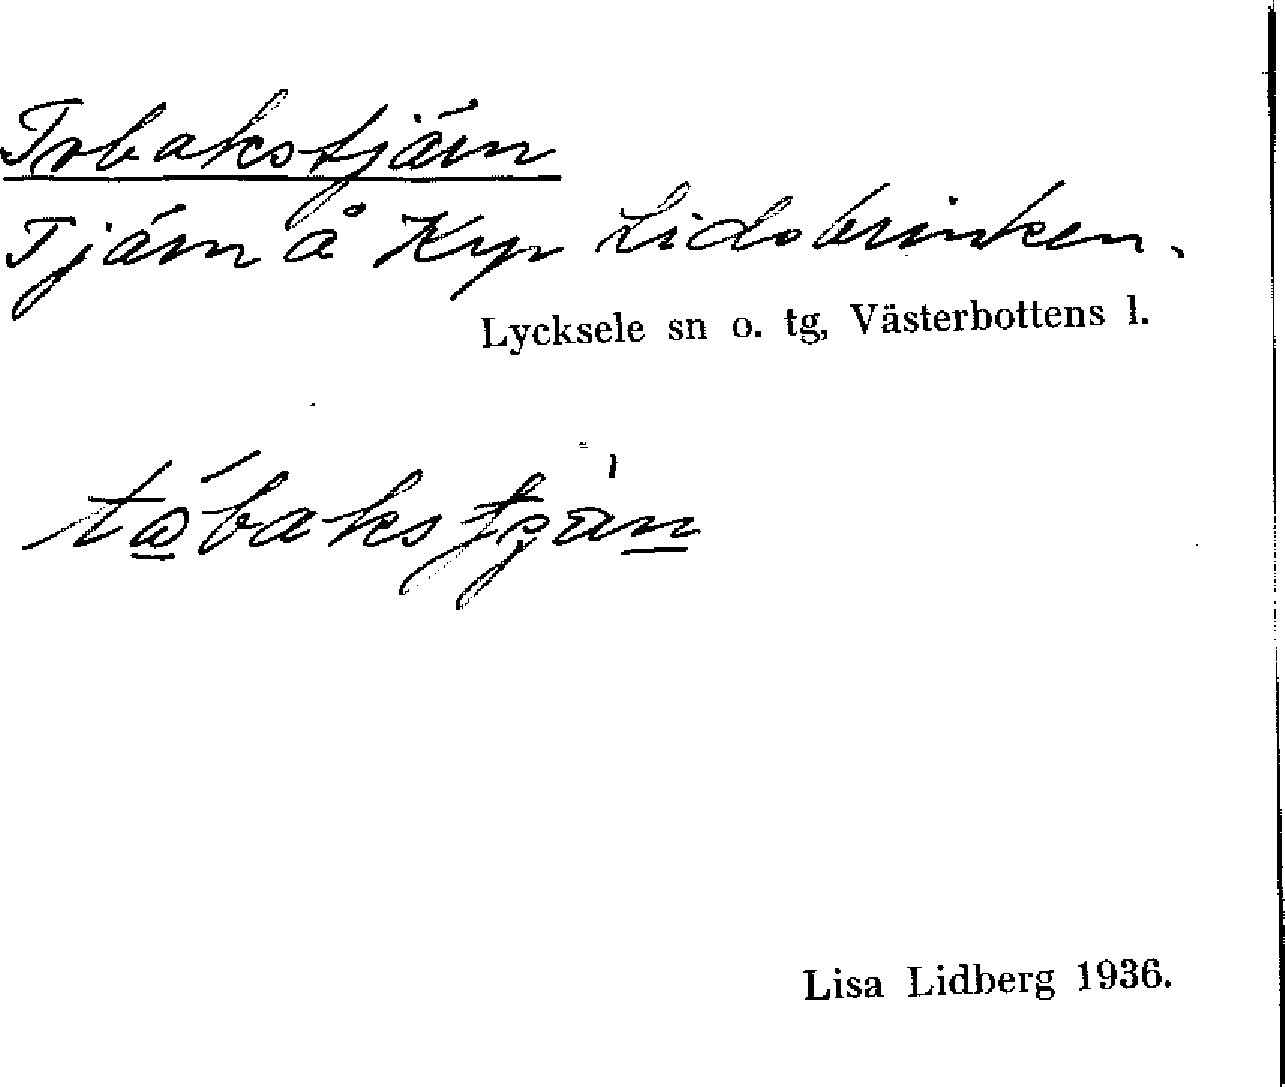 Tobakstjärn
Tjärn å Krp Lidsbrinken.
Lycksele sn o. tg, Västerbottens l.
Lisa Lidberg 1936.